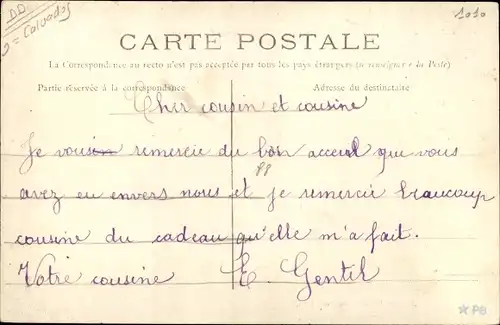 DD
= Calvados
1010
CARTE POSTALE
La Correspondance au recto n'est pas acceptée par tous les pays étrangers (se renseigner à la Poste)
Partie réservée à la correspondance
Adresse du destinataire
Cher cousin et cousine
Je vous remercie du bon acceul que vous
PP
avez eu envers nous et je remercie beaucoup
cousine du cadeau qu'elle m'a fait.
Votre cousine E. Gentil
PB